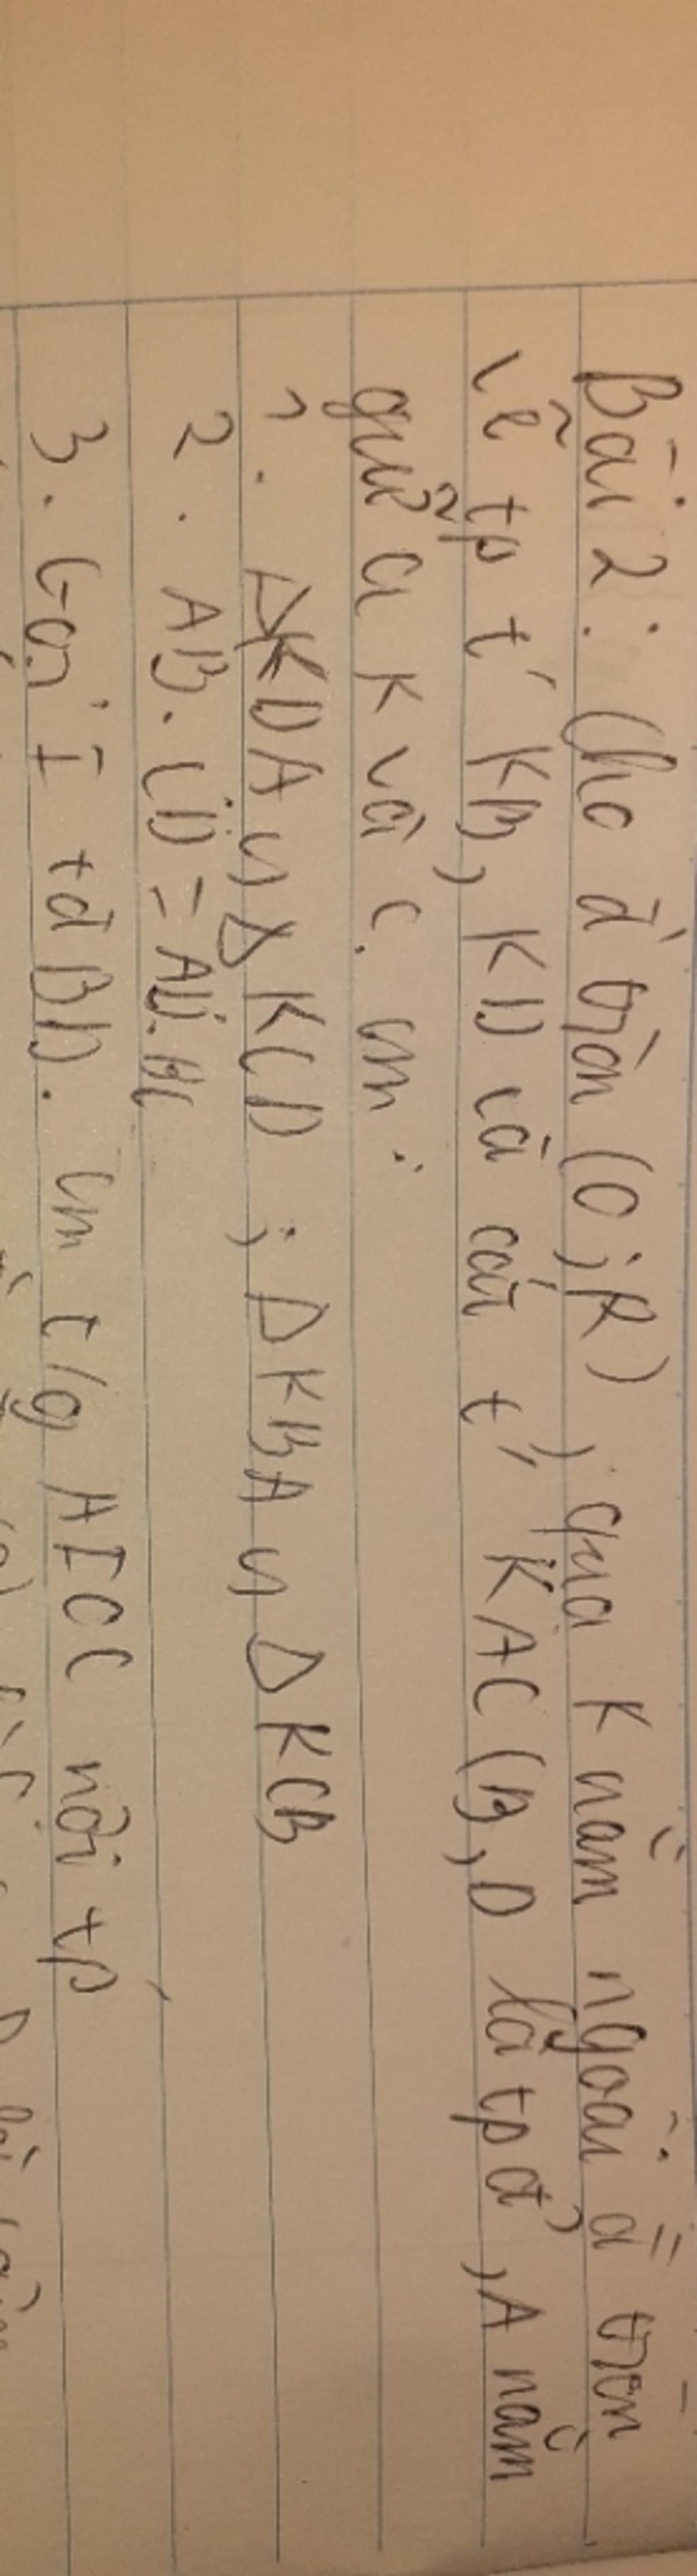 Bài 2: Cho đ' tròn (O;R), qua K nằm ngoài đ' tròn
vẽ tp t' KB, KD và cát t' KAC (B,D là tp đ', A nằm
giữa K và C. cm:
1. ΔKDA ∽ ΔKCD ; ΔKBA ∽ ΔKCB
2. AB. CD = AD. BC
3. Gọi I tđ BD. cm t/g AIOC nội tp